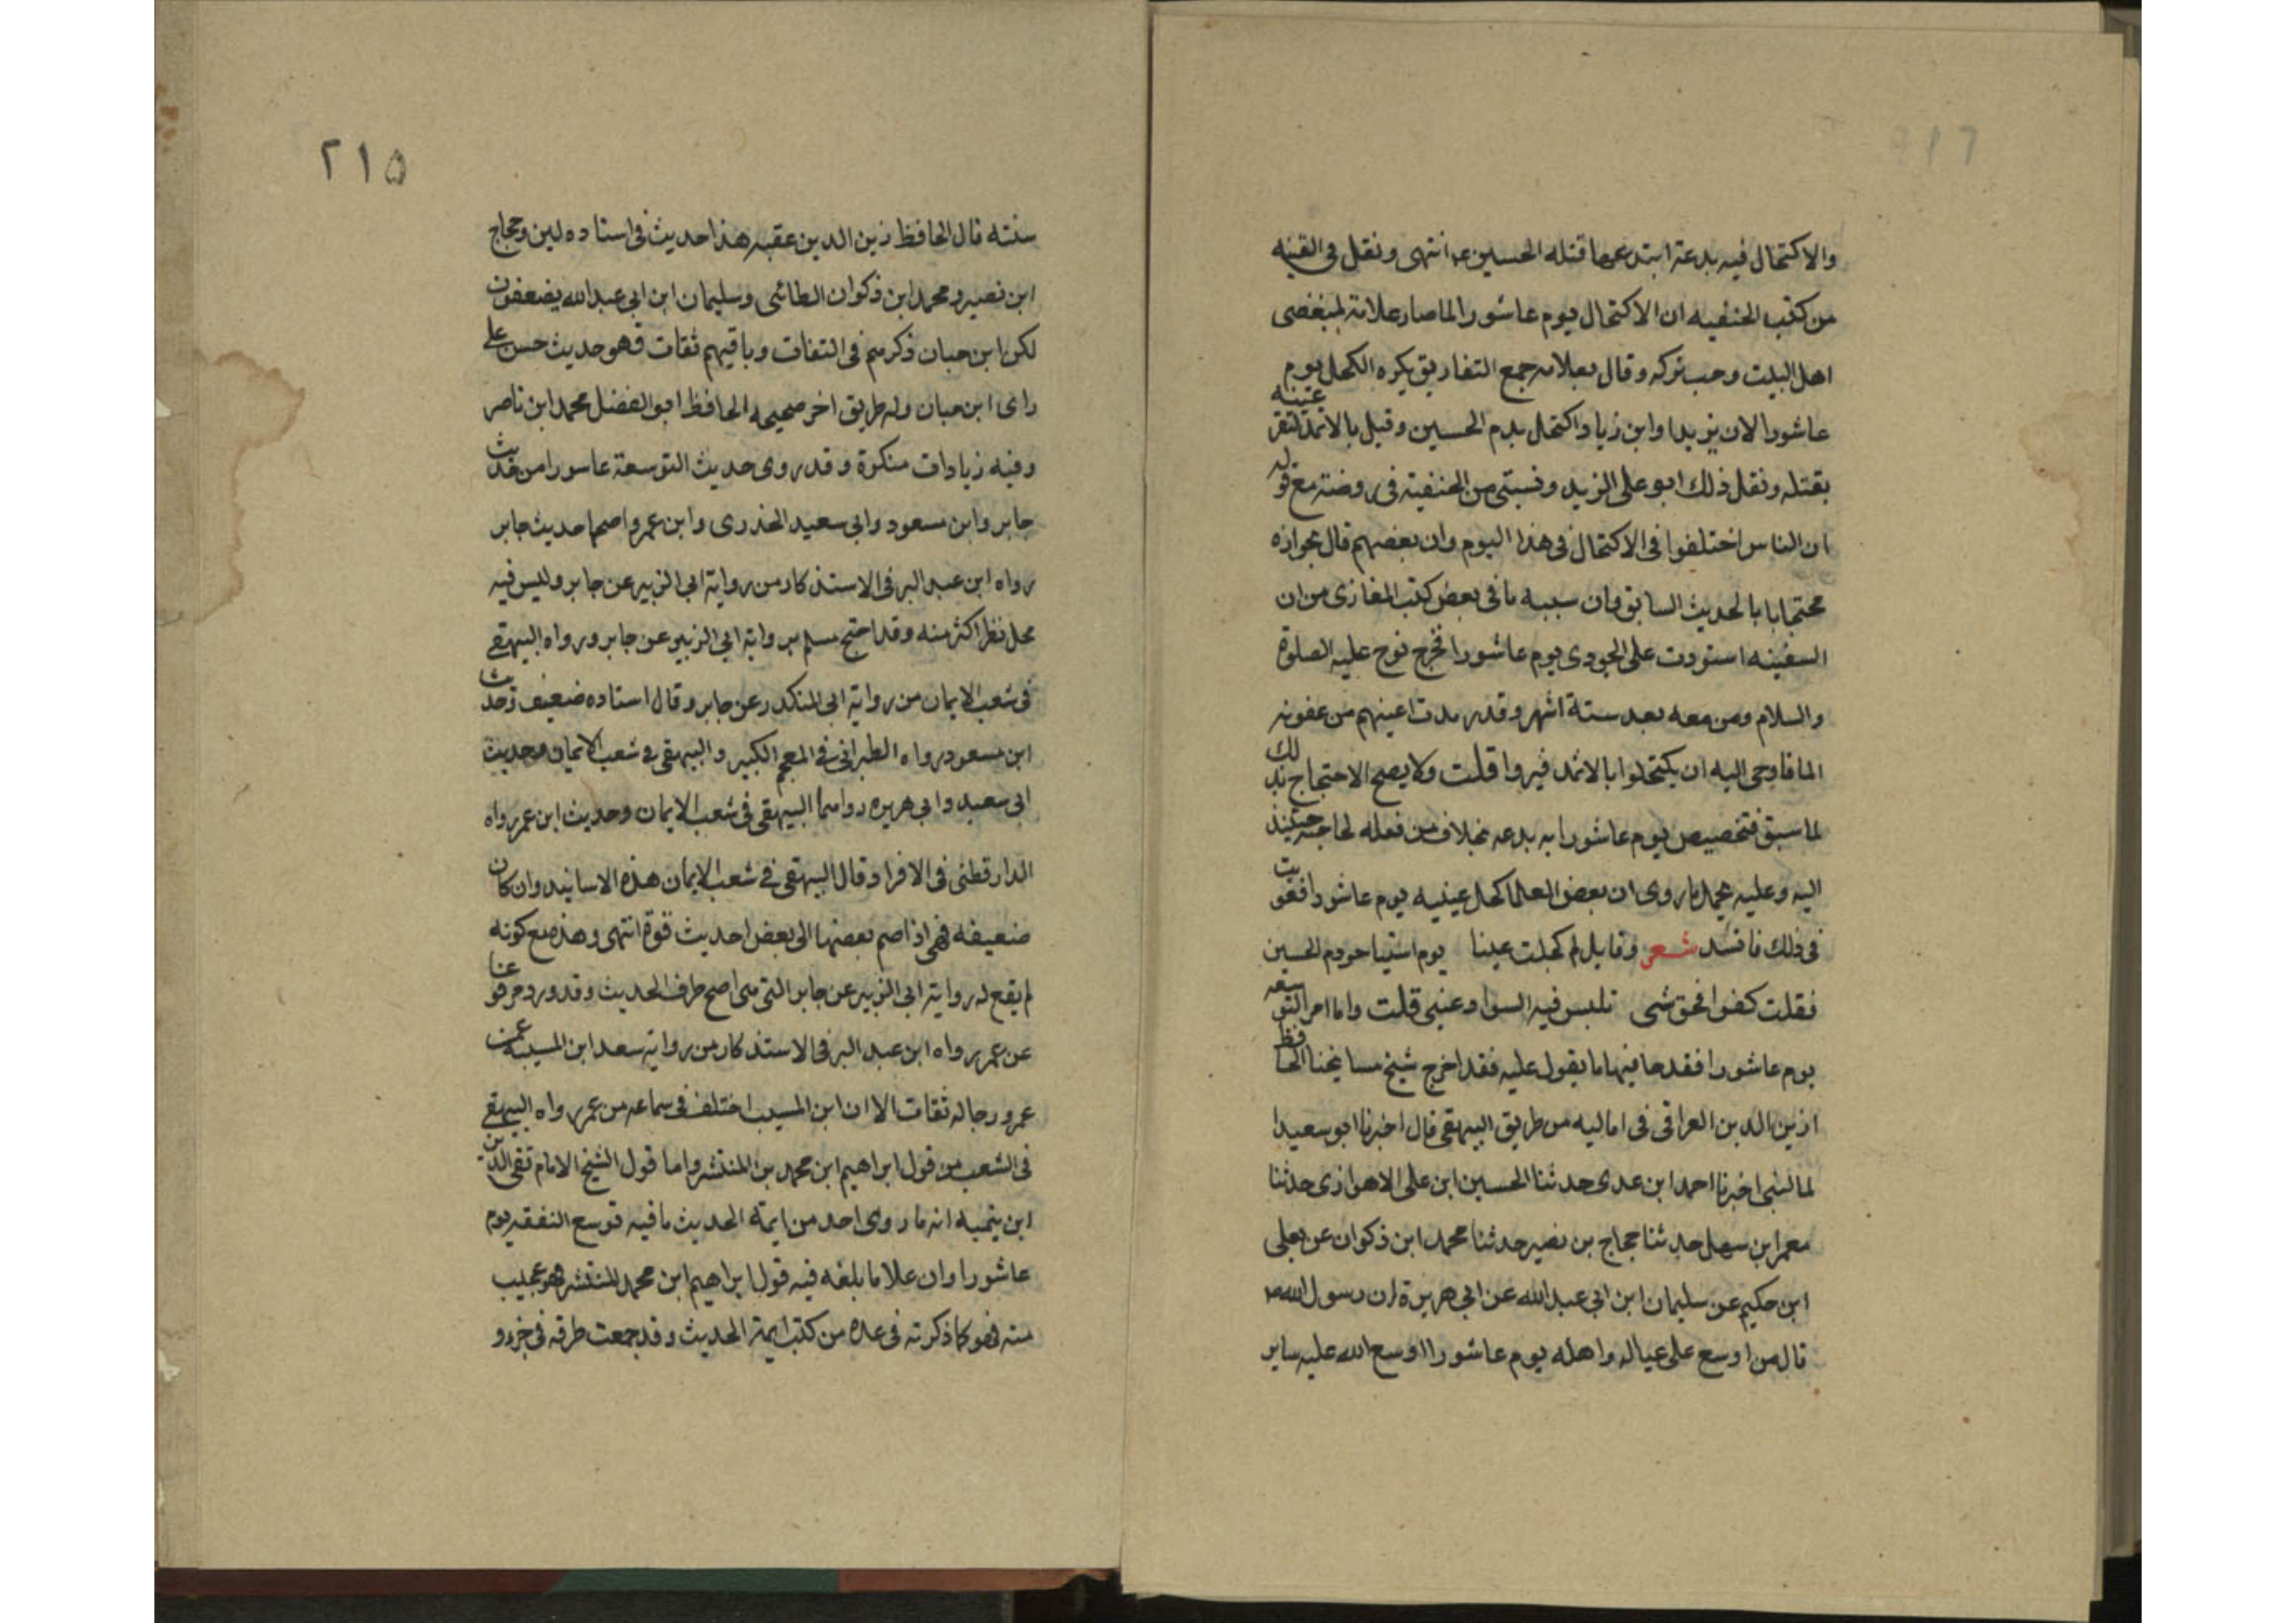 والاكتحال فيه بدعة ابتدعها قتله الحسين عـ انتهى ونقل فى القينه
من كتب الحنفيه ان الاكتحال يوم عاشورا لما صار علامة لمبغضى
اهل البيت وجب تركه وقال بعلامه جمع التفاريق يكره الكحل يوم
عاشورا لان يزيدا وابن زياد اكتحل بدم الحسين وقيل بالاثمد لتقر عينه
بقتله ونقل ذلك ابو على الزيد ونسبتى من الحنفية فى روضته مع قوله
ان الناس اختلفوا فى الاكتحال فى هذا اليوم وان بعضهم قال بجوازه
محتجا با بالحديث السابق وان سببه ما فى بعض كتب المغازى من ان
السفينه استودت على الجودى يوم عاشورا فخرج نوح عليه الصلوة
والسلام ومن معه بعد ستة اشهر وقد رمدت اعينهم من عفونه
الما فاوحى اليه ان يكتحلوا بالاثمد فبروا قلت ولا يصح الاحتجاج بذلك
لما سبق فتخصيص يوم عاشورا به بدعه بخلاف من فعله لحاجته حينئذ
اليه وعليه يحمل ما روى ان بعض العلما كحل عينيه يوم عاشورا فعوتب
فى ذلك فانشد شعر وقايل لم كحلت عينا يوم استباحو دم الحسين
فقلت كفوا فحق شى تلبس فيه السواد عينى قلت واما امر التوسعه
يوم عاشورا فقد جا فيها ما يقول عليه فقد اخرج شيخ مسايخنا الحافظ
ازين الدين العراقى فى اماليه من طريق البيهقى قال اخبرنا ابو سعيد ا
لمالينى اخبرنا احمد ابن عدى حدثنا الحسين ابن على الاهوازى حدثنا
معمر ابن سهل حدثنا حجاج بن نصير حدثنا محمد ابن ذكوان عن يعلى
ابن حكيم عن سليمان ابن ابي عبد الله عن ابي هريرة ان رسول الله ص
قال من اوسع على عياله واهله يوم عاشورا اوسع الله عليه ساير
٢١٥
سنته قال الحافظ زين الدين عقبه هذا حديث فى اسناده لين وحجاج
ابن نصير ومحمد ابن ذكوان الطائى وسليمان ابن ابى عبد الله يضعفون
لكن ابن حبان ذكرهم فى الثقات وباقيهم ثقات فهو حديث حسن على
راى ابن حبان وله طريق اخر صحيحه الحافظ ابو الفضل محمد ابن ناصر
وفيه زيادات منكرة وقد روى حديث التوسعة عاسورا من حديث
جابر وابن مسعود وابى سعيد الخدرى وابن عمر واصحها حديث جابر
رواه ابن عبد البر فى الاستذكار من رواية ابى الزبير عن جابر وليس فيه
محل نظر اكثر منه وقد احتج مسلم برواية ابي الزبير عن جابر ورواه البيهقى
فى شعب الايمان من رواية ابى المنكدر عن جابر وقال اسناده ضعيف وحديث
ابن مسعود رواه الطبرانى فى المعجم الكبير والبيهقى فى شعب الايمان وحديث
ابى سعيد وابى هريره رواهما البيهقى فى شعب الايمان وحديث ابن عمر رواه
الدارقطنى فى الافراد وقال البيهقى فى شعب الايمان هذه الاسانيد وان كان
ضعيفه فهى اذا ضم بعضها الى بعض احديث قوة انتهى وهذه مع كونه
لم يقع له رواية ابى الزبير عن جابر التى هى اصح طرق الحديث وقد ورد مرفوعنا
عن عمر رواه ابن عبد البر فى الاستذكار من رواية سعد ابن المسيب عن
عمر ورجاله ثقات الا ان ابن المسيب اختلف فى سماعه من عمر رواه البيهقى
فى الشعب من قول ابراهيم ابن محمد بن المنتشر واما قول الشيخ الامام تقى الدين
ابن يتميه انه ما روى احد من ايمة الحديث ما فيه توسع النفقه يوم
عاشورا وان علا ما بلغه فيه قول ابراهيم ابن محمد المنتشر فهو عجيب
منه فهو كما ذكرته فى عدة من كتب ايمة الحديث وقد جمعت طرقه فى جزو